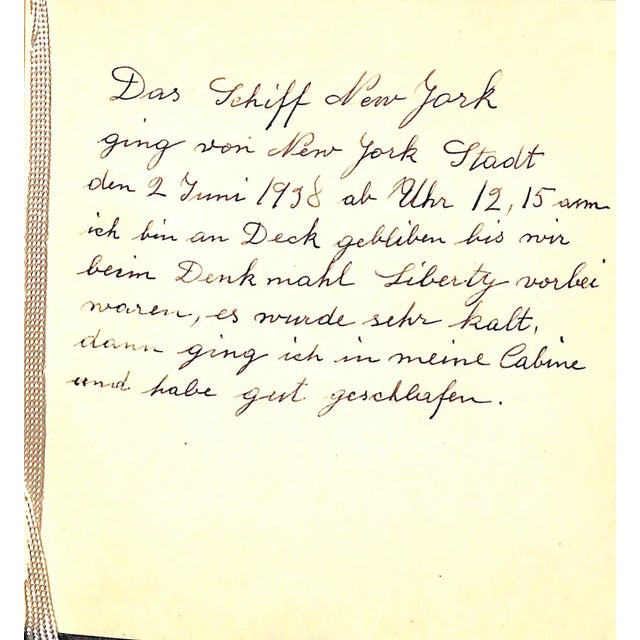 Das Schiff New York
ging von New York Stadt
den 2 Juni 1938 ab Uhr 12,15 am
ich bin an Deck gebliben bis wir
beim Denkmahl Liberty vorbei
waren, es wurde sehr kalt,
dann ging ich in meine Cabine
und habe gut geschlafen.